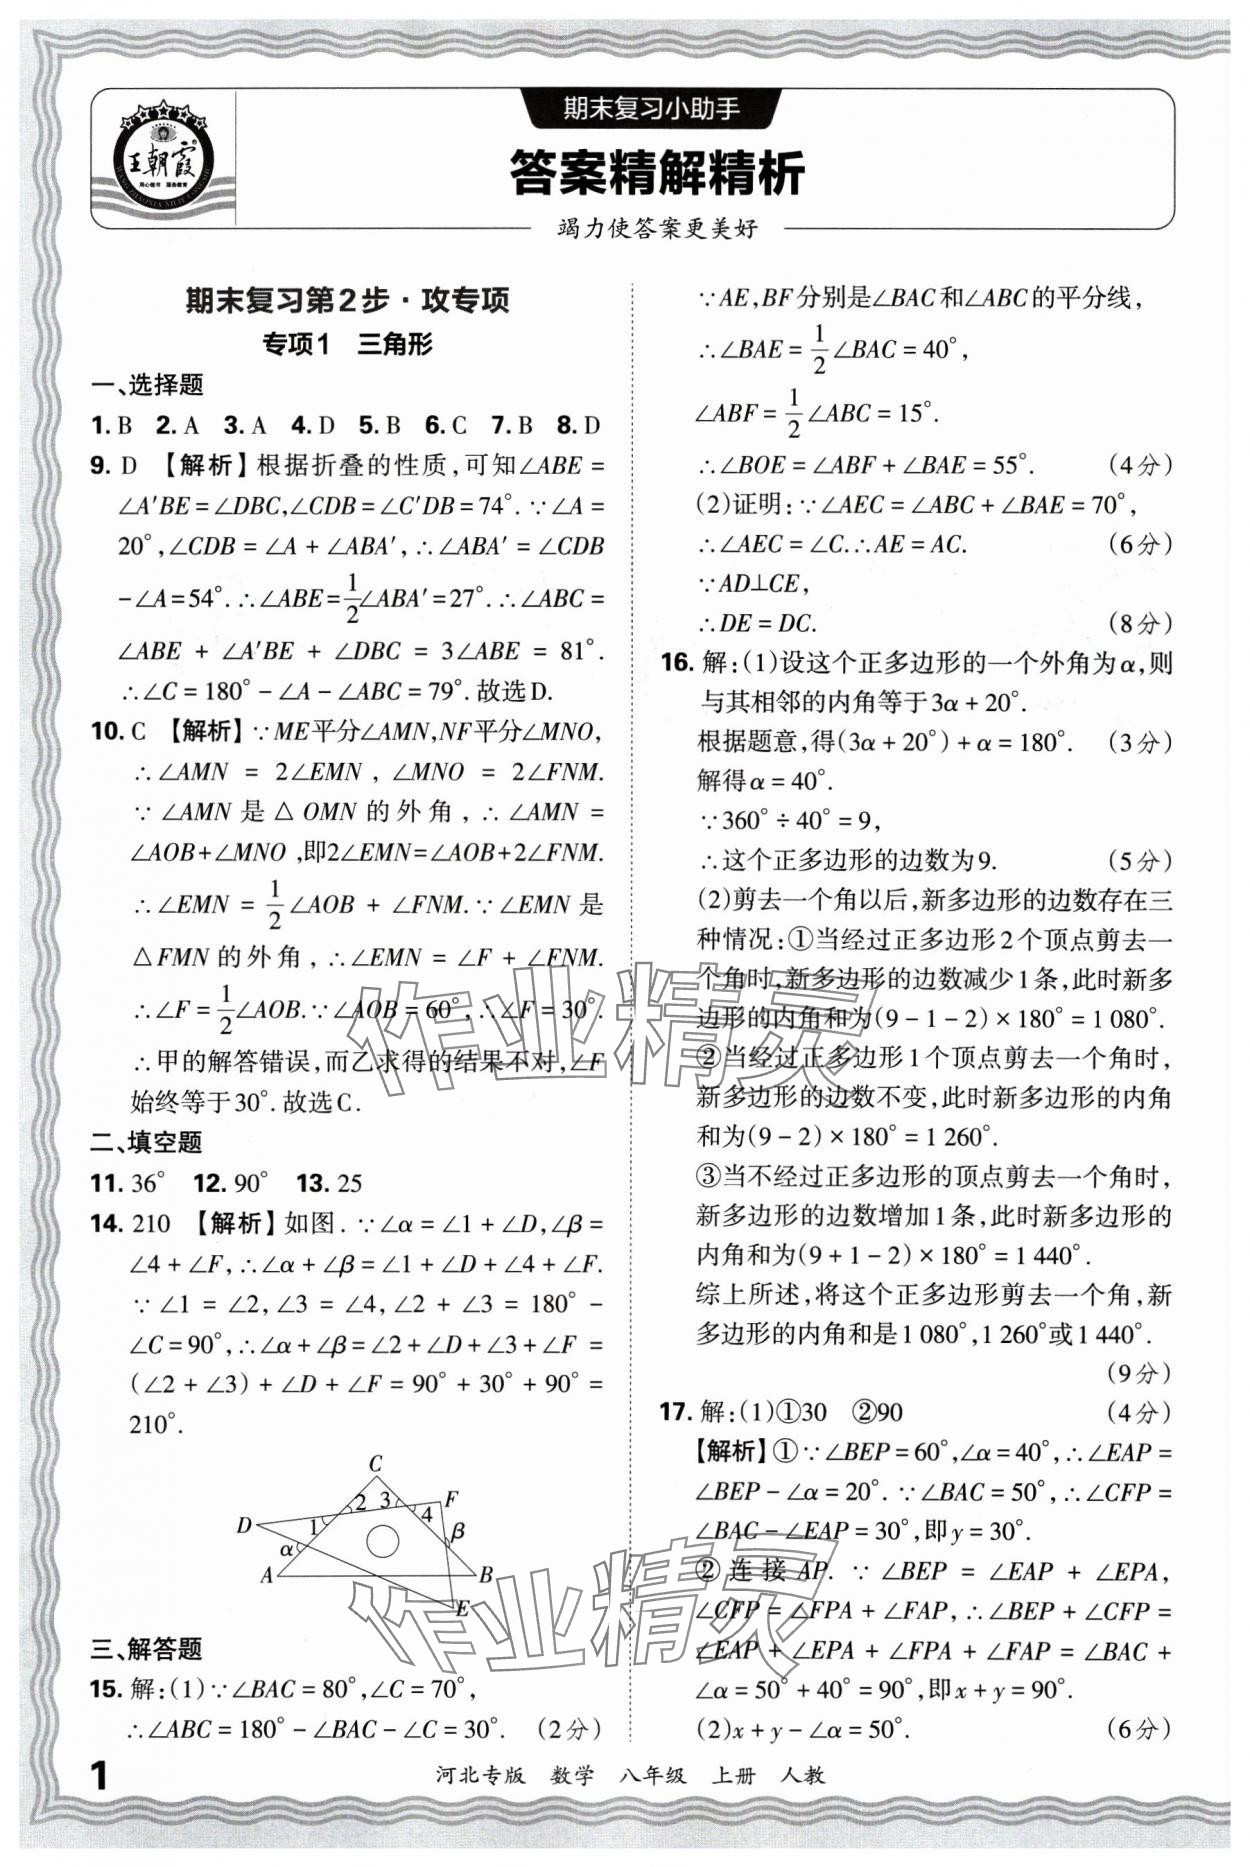 期末复习小助手
王朝霞®
用心做书 服务教育
答案精解精析
竭力使答案更美好
期末复习第2步·攻专项
专项1 三角形
一、选择题
1. B 2. A 3. A 4. D 5. B 6. C 7. B 8. D
9. D 【解析】根据折叠的性质,可知∠ABE=
∠A′BE=∠DBC,∠CDB=∠C′DB=74°.∵∠A=
20°,∠CDB=∠A+∠ABA′,∴∠ABA′=∠CDB
-∠A=54°.∴∠ABE=1/2∠ABA′=27°.∴∠ABC=
∠ABE+∠A′BE+∠DBC=3∠ABE=81°.
∴∠C=180°-∠A-∠ABC=79°.故选D.
10. C 【解析】∵ME平分∠AMN,NF平分∠MNO,
∴∠AMN=2∠EMN,∠MNO=2∠FNM.
∵∠AMN是△OMN的外角,∴∠AMN=
∠AOB+∠MNO,即2∠EMN=∠AOB+2∠FNM.
∴∠EMN=1/2∠AOB+∠FNM.∵∠EMN是
△FMN的外角,∴∠EMN=∠F+∠FNM.
∴∠F=1/2∠AOB.∵∠AOB=60°,∴∠F=30°.
∴甲的解答错误,而乙求得的结果不对,∠F
始终等于30°.故选C.
二、填空题
11. 36° 12. 90° 13. 25
14. 210 【解析】如图.∵∠α=∠1+∠D,∠β=
∠4+∠F,∴∠α+∠β=∠1+∠D+∠4+∠F.
∵∠1=∠2,∠3=∠4,∠2+∠3=180°-
∠C=90°,∴∠α+∠β=∠2+∠D+∠3+∠F=
(∠2+∠3)+∠D+∠F=90°+30°+90°=
210°.
C
2 3 F
D 1 4
α β
A B
E
三、解答题
15. 解:(1)∵∠BAC=80°,∠C=70°,
∴∠ABC=180°-∠BAC-∠C=30°. (2分)
∵AE,BF分别是∠BAC和∠ABC的平分线,
∴∠BAE=1/2∠BAC=40°,
∠ABF=1/2∠ABC=15°.
∴∠BOE=∠ABF+∠BAE=55°. (4分)
(2)证明:∵∠AEC=∠ABC+∠BAE=70°,
∴∠AEC=∠C.∴AE=AC. (6分)
∵AD⊥CE,
∴DE=DC. (8分)
16. 解:(1)设这个正多边形的一个外角为α,则
与其相邻的内角等于3α+20°.
根据题意,得(3α+20°)+α=180°. (3分)
解得α=40°.
∵360°÷40°=9,
∴这个正多边形的边数为9. (5分)
(2)剪去一个角以后,新多边形的边数存在三
种情况:①当经过正多边形2个顶点剪去一
个角时,新多边形的边数减少1条,此时新多
边形的内角和为(9-1-2)×180°=1 080°.
②当经过正多边形1个顶点剪去一个角时,
新多边形的边数不变,此时新多边形的内角
和为(9-2)×180°=1 260°.
③当不经过正多边形的顶点剪去一个角时,
新多边形的边数增加1条,此时新多边形的
内角和为(9+1-2)×180°=1 440°.
综上所述,将这个正多边形剪去一个角,新
多边形的内角和是1 080°,1 260°或1 440°.
(9分)
17. 解:(1)①30 ②90 (4分)
【解析】①∵∠BEP=60°,∠α=40°,∴∠EAP=
∠BEP-∠α=20°.∵∠BAC=50°,∴∠CFP=
∠BAC-∠EAP=30°,即y=30°.
②连接AP.∵∠BEP=∠EAP+∠EPA,
∠CFP=∠FPA+∠FAP,∴∠BEP+∠CFP=
∠EAP+∠EPA+∠FPA+∠FAP=∠BAC+
∠α=50°+40°=90°,即x+y=90°.
(2)x+y-∠α=50°. (6分)
作业精灵
作业精灵
1
河北专版 数学 八年级 上册 人教